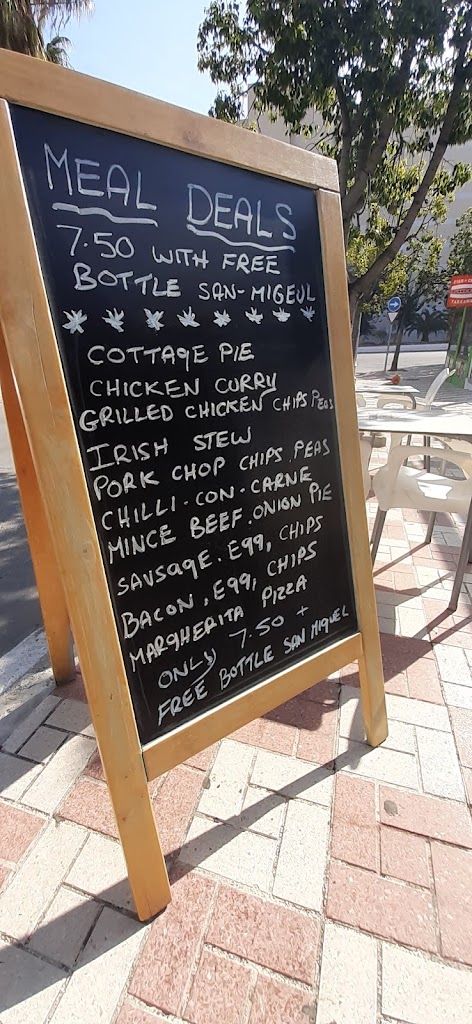 MEAL DEALS
7.50 WITH FREE
BOTTLE SAN-MIGEUL
COTTAGE PIE
CHICKEN CURRY
GRILLED CHICKEN CHIPS PEAS
IRISH STEW
PORK CHOP CHIPS.PEAS
CHILLI-CON-CARNE
MINCE BEEF.ONION PIE
SAUSAGE.EGG, CHIPS
BACON.EGG, CHIPS
MARGHERITA PIZZA
ONLY 7.50 +
FREE BOTTLE SAN MIGUEL